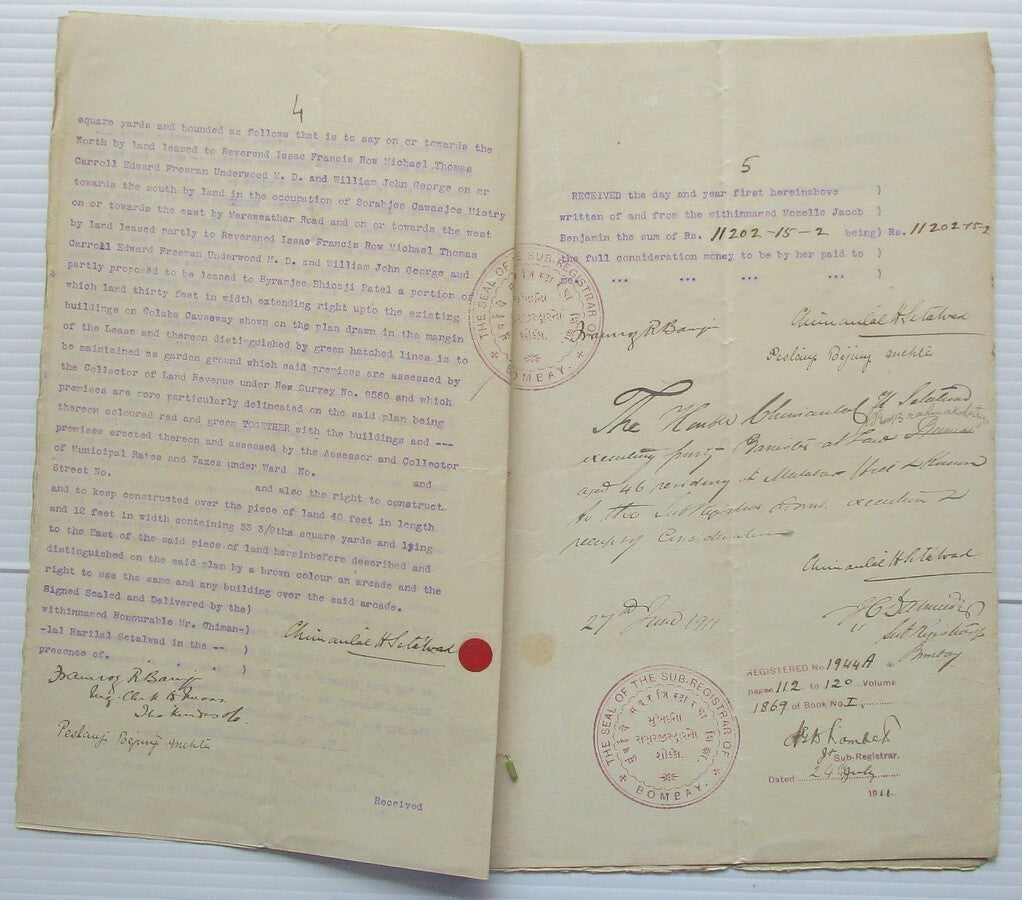 4
square yards and bounded as follows that is to say on or towards the
North by land leased to Reverend Issac Francis Row Michael Thomas
Carroll Edward Freeman Underwood M. D. and William John George on or
towards the south by land in the occupation of Sorabjee Cawasjee Mistry
on or towards the east by Mereweather Road and on or towards the west
by land leased partly to Reverened Issac Francis Row Michael Thomas
Carroll Edward Freeman Underwood M. D. and William John George and
partly proposed to be leased to Byramjee Bhicaji Patel a portion of
which land thirty feet in width extending right upto the existing
buildings on Colaba Causeway shown on the plan drawn in the margin
of the Lease and thereon distinguished by green hatched lines is to
be maintained as garden ground which said premises are assessed by
the Collector of Land Revenue under New Survey No. 9560 and which
premises are more particularly delineated on the said plan being
thereon coloured red and green TOGETHER with the buildings and ---
premises erected thereon and assessed by the Assessor and Collector
of Municipal Rates and Taxes under Ward No. and
Street No. and also the right to construct
and to keep constructed over the piece of land 40 feet in length
and 12 feet in width containing 53 3/9ths square yards and lying
to the East of the said piece of land hereinbefore described and
distinguished on the said plan by a brown colour an arcade and the
right to use the same and any building over the said arcade.
Signed Sealed and Delivered by the)
withinnamed Honourable Mr. Chiman-)
-lal Harilal Setalwad in the -- )
presence of. . . . )
Chimanlal H Setalwad
Framroz R Banji
Pestanji Bijinji Mehta
Received
5
RECEIVED the day and year first hereinabove )
written of and from the withinnamed Mozelle Jacob )
Benjamin the sum of Rs. 11202-15-2 being) Rs. 11202-15-2
the full consideration money to be by her paid to )
me. ... ... ... ... )
THE SEAL OF THE SUB-REGISTRAR OF BOMBAY.
Framroz R Banji
Chimanlal H Setalwad
Pestanji Bijinji Mehta
The Honble Chimanlal H Setalwad
executing party Barrister at Law
aged 46 residing at Malabar Hill is known
to the Sub Registrar admits execution &
receipt of Consideration
Chimanlal H Setalwad
27th June 1911
Sub Registrar
Bombay
REGISTERED No. 1944A
pages 112 to 120 Volume
1869 of Book No. I
Sub-Registrar.
Dated 24th July
1911
THE SEAL OF THE SUB-REGISTRAR OF BOMBAY.